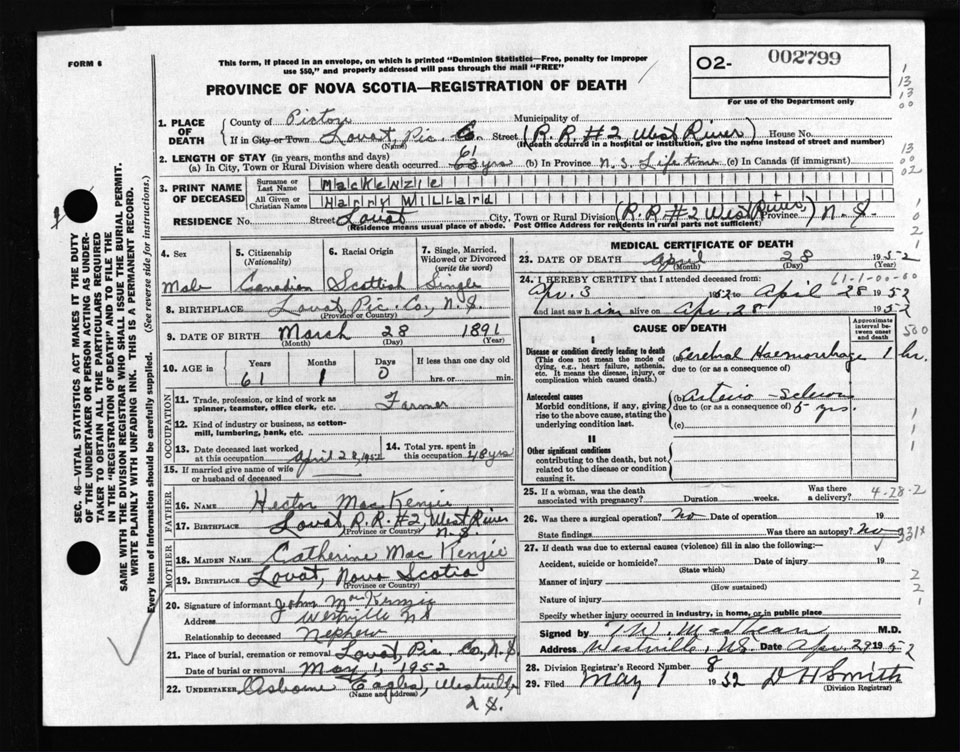 FORM 6
This form, if placed in an envelope, on which is printed "Dominion Statistics—Free, penalty for improper
use $50," and properly addressed will pass through the mail "FREE"
O2- 002799
For use of the Department only
PROVINCE OF NOVA SCOTIA—REGISTRATION OF DEATH
1. PLACE OF DEATH
County of Pictou Municipality of
If in City or Town Lovat, Pic. C. Street (R.R. #2 West River) House No.
(Name) (If death occurred in a hospital or institution, give the name instead of street and number)
2. LENGTH OF STAY (in years, months and days)
(a) In City, Town or Rural Division where death occurred 61 63 yrs (b) In Province N.S. Life time (c) In Canada (if immigrant)
3. PRINT NAME OF DECEASED
Surname or Last Name MacKenzie
All Given or Christian Names Harry Millard
RESIDENCE No. Street Lovat City, Town or Rural Division (R.R #2 West River) Province N.S.
(Residence means usual place of abode. Post Office Address for residents in rural parts not sufficient)
4. Sex
Male
5. Citizenship (Nationality)
Canadian
6. Racial Origin
Scottish
7. Single, Married, Widowed or Divorced (write the word)
Single
8. BIRTHPLACE Lovat Pic. Co, N.S.
(Province or Country)
9. DATE OF BIRTH March 28 1891
(Month) (Day) (Year)
10. AGE in Years Months Days If less than one day old
61 1 0 hrs. or min.
OCCUPATION
11. Trade, profession, or kind of work as spinner, teamster, office clerk, etc. Farmer
12. Kind of industry or business, as cotton-mill, lumbering, bank, etc.
13. Date deceased last worked at this occupation April 28, 1952
14. Total yrs. spent in this occupation 48 yrs
15. If married give name of wife or husband of deceased
FATHER
16. NAME Hector MacKenzie
17. BIRTHPLACE Lovat, R.R. #2, West River N.S.
(Province or Country)
MOTHER
18. MAIDEN NAME Catherine MacKenzie
19. BIRTHPLACE Lovat, Nova Scotia
(Province or Country)
20. Signature of informant John MacKenzie
Address Westville NS
Relationship to deceased Nephew
21. Place of burial, cremation or removal Lovat, Pic. Co, N.S
Date of burial or removal May 1, 1952
22. UNDERTAKER Osborne Eagles, Westville
(Name and address)
N.S.
MEDICAL CERTIFICATE OF DEATH
23. DATE OF DEATH April 28 1952
(Month) (Day) (Year)
24. I HEREBY CERTIFY that I attended deceased from: 61-1-00-00
Apr. 3 1952 to April 28 1952
and last saw him alive on Apr. 28 1952
CAUSE OF DEATH
Approximate interval between onset and death
I
Disease or condition directly leading to death (a) Cerebral Haemorrhage 1 hr.
(This does not mean the mode of dying, e.g., heart failure, asthenia, etc. It means the disease, injury, or complication which caused death.)
due to (or as a consequence of)
Antecedent causes (b) Arterio-Sclerosis
Morbid conditions, if any, giving rise to the above cause, stating the underlying condition last.
due to (or as a consequence of) 5 yrs.
(c)
II
Other significant conditions
contributing to the death, but not related to the disease or condition causing it.
25. If a woman, was the death associated with pregnancy? Duration weeks. Was there a delivery? 4-28-2
26. Was there a surgical operation? No Date of operation 19
State findings Was there an autopsy? No 331x
27. If death was due to external causes (violence) fill in also the following:—
Accident, suicide or homicide? Date of injury 19
(State which)
Manner of injury
(How sustained)
Nature of injury
Specify whether injury occurred in industry, in home, or in public place
Signed by M.D.
Address Westville, N.S. Date Apr. 29 1952
28. Division Registrar's Record Number 8
29. Filed May 1 1952 D H Smith
(Division Registrar)
SEC. 46—VITAL STATISTICS ACT MAKES IT THE DUTY
OF THE UNDERTAKER OR PERSON ACTING AS UNDER-
TAKER TO OBTAIN ALL THE PARTICULARS REQUIRED
IN THE "REGISTRATION OF DEATH" AND TO FILE THE
SAME WITH THE DIVISION REGISTRAR WHO SHALL ISSUE THE BURIAL PERMIT.
WRITE PLAINLY WITH UNFADING INK. THIS IS A PERMANENT RECORD.
Every item of information should be carefully supplied. (See reverse side for instructions.)